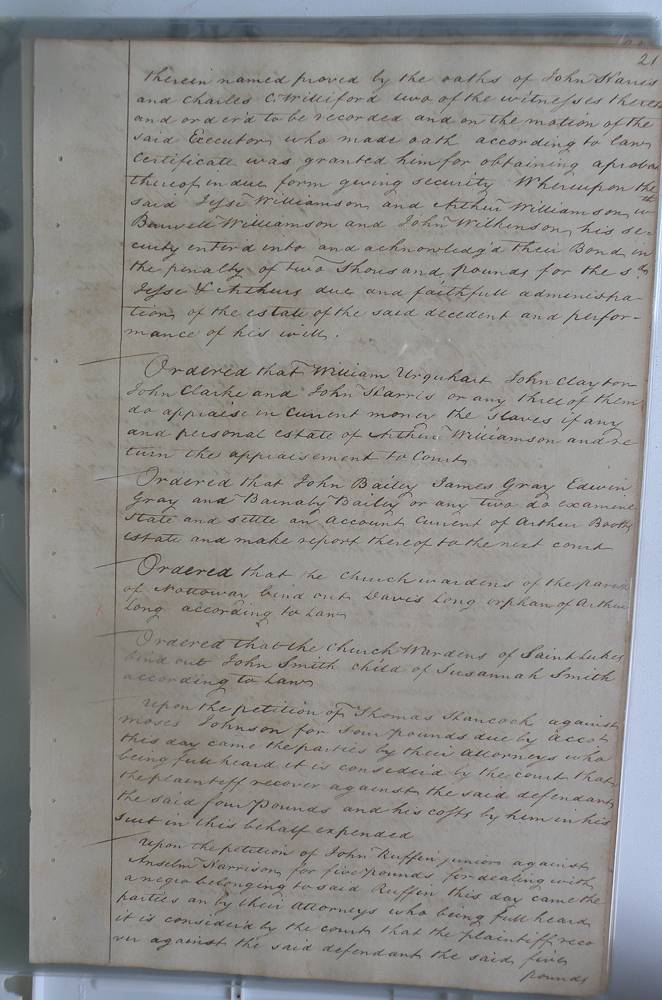 21
therein named proved by the oaths of John Harris
and Charles C. Williford two of the witnesses thereto
and order'd to be recorded and on the motion of the
said Executors who made oath according to law
Certificate was granted him for obtaining a probat
thereof in due form giving security Whereupon the
said Jesse Williamson and Arthur Williamson wth
Burwell Williamson and John Wilkinson his se-
curity enter'd into and acknowledg'd their Bond in
the penalty of two Thousand pounds for the sd
Jesse & Arthurs due and faithfull administra-
tion of the estate of the said decedent and perfor-
mance of his will.
Ordered that William Urquhart John Clayton
John Clarke and John Harris or any three of them
do appraise in Current money the slaves if any
and personal estate of Arthur Williamson and re
turn the appraisement to Court
Ordered that John Bailey James Gray Edwin
Gray and Barnaby Bailey or any two do examine
State and settle an account Current of Arthur Booths
estate and make report thereof to the next court
Ordered that he Church wardens of the parish
of Nottoway bind out Davis Long orphan of Arthur
Long according to Law
Ordered that the Church Wardens of Saint Lukes
bind out John Smith child of Susannah Smith
according to Law
Upon the petition of Thomas Hancock against
Moses Johnson for four pounds due by accot
this day came the parties by their attorneys who
being full heard it is consider'd by the court that
the plaintiff recover against the said defendant
the said four Pounds and his costs by him in his
suit in this behalf expended
Upon the petition of John Ruffin junior against
Anselm Harrison for five pounds for dealing with
a negro belonging to said Ruffin this day came the
parties an by their Attorneys who being full heard
it is consider'd by the court that the plaintiff reco
ver against the said defendant the said five
pounds